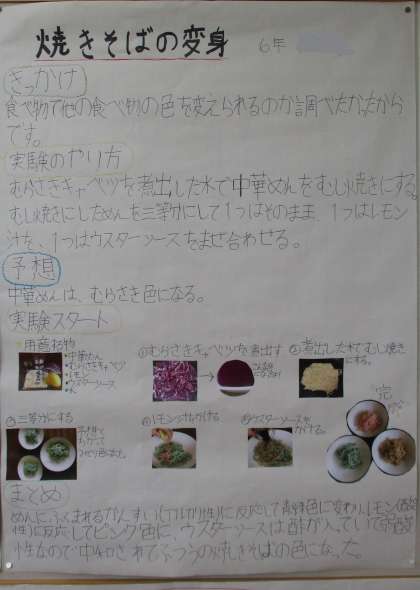 焼きそばの変身 6年
きっかけ
食べ物で他の食べ物の色を変えられるのか調べたかったから
です。
実験のやり方
むらさきキャベツを煮出した水で中華めんをむし焼きにする。
むし焼きにしためんを三等分にして1つはそのまま、1つはレモン
汁を、1つはウスターソースをまぜ合わせる。
予想
中華めんは、むらさき色になる。
実験スタート
用意する物
・中華めん
・むらさきキャベツ
・レモン
・ウスターソース
・水
①むらさきキャベツを煮出す
②煮出した水でむし焼き
にする。
③三等分にする
④レモン汁をかける
⑤ウスターソースを
かける。
完
まとめ
めんにふくまれるかんすい(アルカリ性)に反応して青緑色に変わり、レモン(酸
性)に反応してピンク色に、ウスターソースは酢が入っていて弱酸
性なので中和されてふつうの焼きそばの色になった。